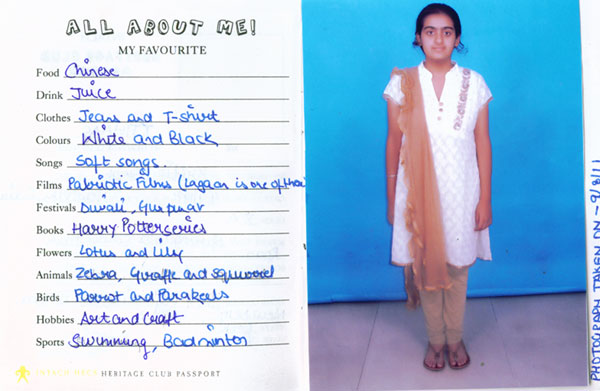 ALL ABOUT ME!
MY FAVOURITE
Food Chinese
Drink Juice
Clothes Jeans and T-shirt
Colours White and Black
Songs Soft songs.
Films Patriotic Films (Lagaan is one of them)
Festivals Diwali, Gurpurav
Books Harry Potter series
Flowers Lotus and Lily
Animals Zebra, Giraffe and squirrel
Birds Parrot and Parakeets
Hobbies Art and Craft
Sports Swimming, Badminton
INTACH HECS HERITAGE CLUB PASSPORT
PHOTOGRAPH TAKEN ON - 9/8/11